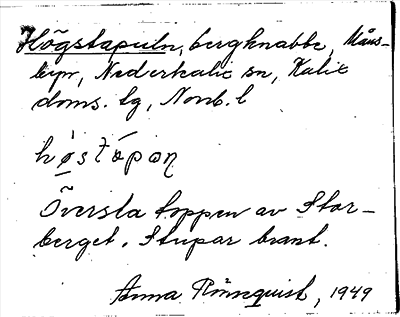 Högstapuln, bergknabbe, Måns-
byn, Nederkalix sn, Kalix
doms. lg, Norrb. l
høstå̀poṇ
Översta toppen av Stor-
berget. Stupar brant.
Anna Rönnquist, 1949